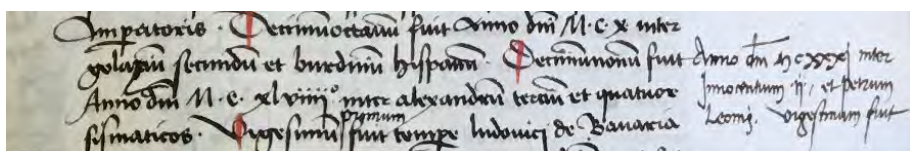 Imperatoris. Decimuoctauu fuit Anno dni M.c.x inter
golasiu secundu et burdinu hispanu. Decimunonu fuit
Anno dni M.c.xlviiii° inter alexandru terciu et quatuor
primum
sismaticos. Vigesimu fuit tempe ludouici de Bauaria
Anno dni Mcxxxj inter
Innocentium ij, et petrum
Leonis. vigesimum fuit